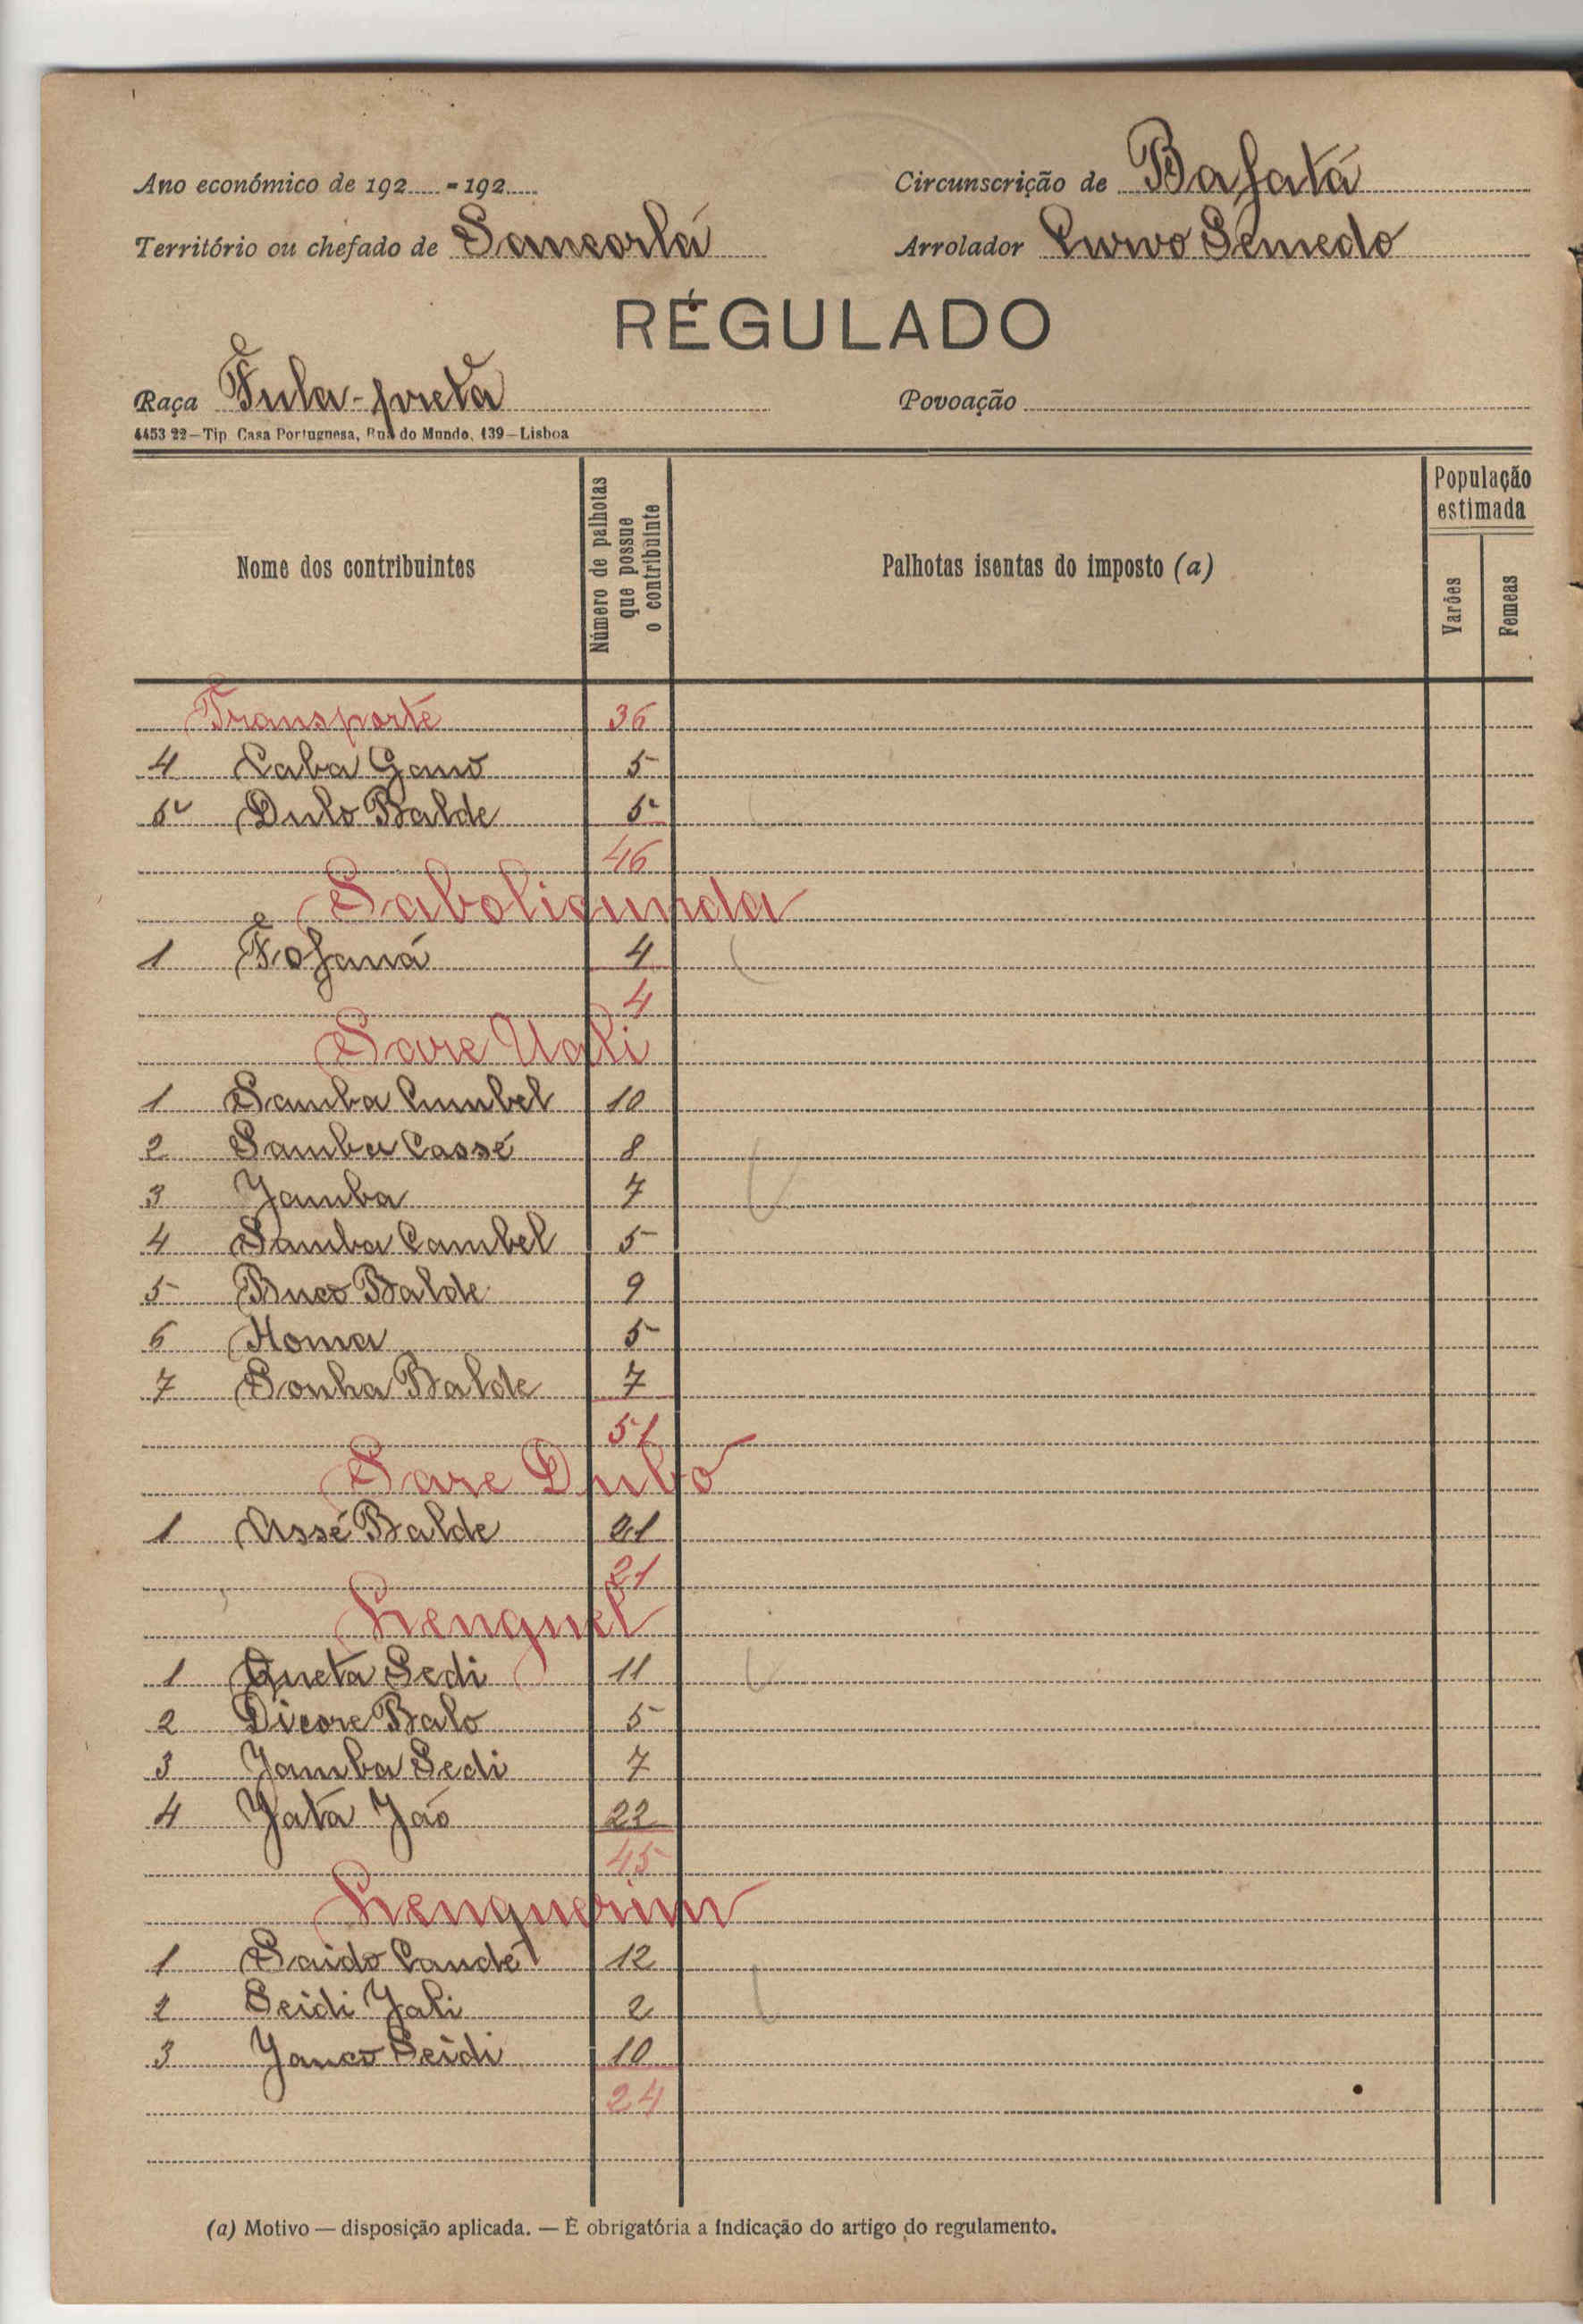 Ano económico de 192.....-192.....
Circunscrição de Bafatá
Território ou chefado de Sancorlá
Arrolador Curvo Sémedo
RÉGULADO
Raça Fula-preta
Povoação
4453 22—Tip Casa Portuguesa, Rua do Mundo, 139—Lisboa
Nome dos contribuintes
Número de palhotas que possue o contribuinte
Palhotas isentas do imposto (a)
População estimada
Varões
Femeas
Transporte 36
4 Caba Gano 5
5 Dulo Balde 5
46
Saboliounda
1 Fofaná 4
4
Sare Uali
1 Samba Cumbel 10
2 Samba Cassé 8
3 Yamba 7
4 Samba Cambel 5
5 Buco Balde 9
6 Homa 5
7 Sonha Balde 7
51
Sare Dubo
1 Assé Balde 21
21
Lenguel
1 Queta Sedi 11
2 Dicore Balo 5
3 Yamba Sedi 7
4 Yatá Yaó 22
45
Lenguerim
1 Saido Candé 12
2 Seidi Yali 2
3 Yanco Seidi 10
24
(a) Motivo — disposição aplicada. — É obrigatória a indicação do artigo do regulamento.